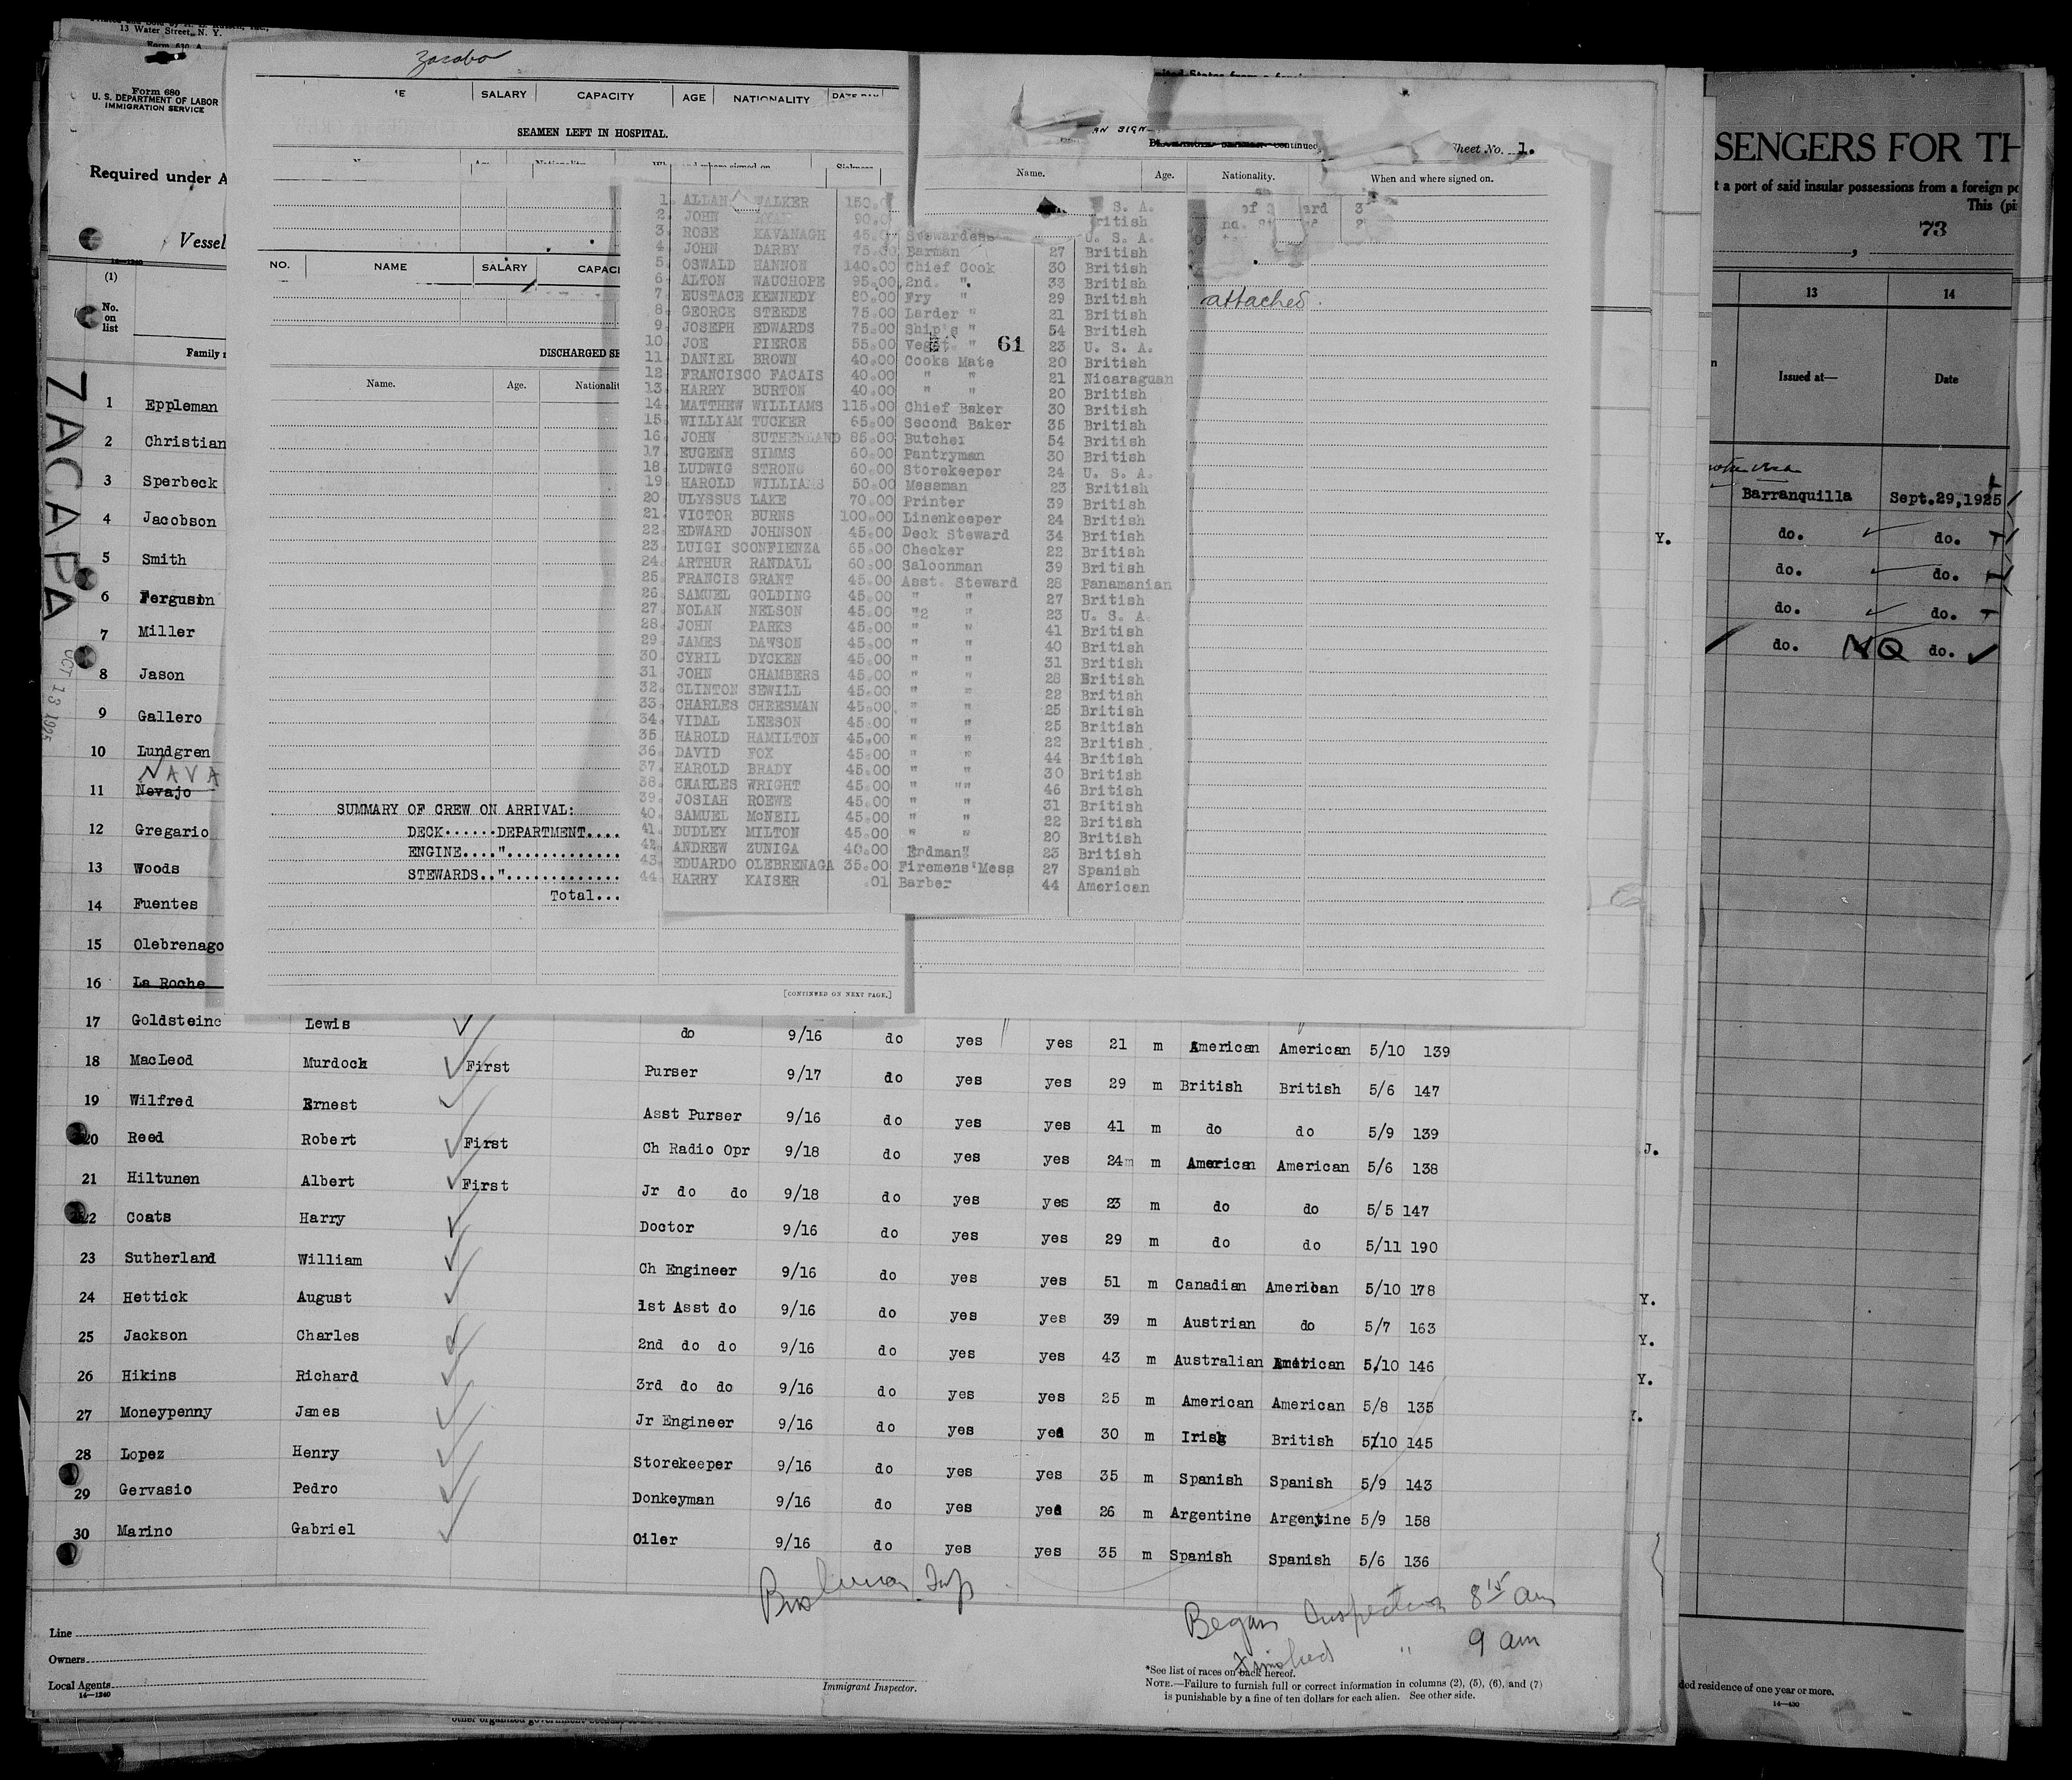 13 Water Street, N. Y.
Form 630 A
Form 680
U. S. DEPARTMENT OF LABOR
IMMIGRATION SERVICE
Required under A
Vessel
14—1240
(1)
No. on list
Family
ZACAPA
OCT 13 1925
1 Eppleman
2 Christian
3 Sperbeck
4 Jacobson
5 Smith
6 Ferguson
7 Miller
8 Jason
9 Gallero
10 Lundgren
NAVA
11 Nevajo
12 Gregario
13 Woods
14 Fuentes
15 Olebrenago
16 La Roche
SALARY CAPACITY AGE NATIONALITY
SEAMEN LEFT IN HOSPITAL.
NO. NAME SALARY CAPACI
DISCHARGED SE
Name. Age. Nationalit
SUMMARY OF CREW ON ARRIVAL:
DECK......DEPARTMENT....
ENGINE....".............
STEWARDS..".............
Total...
[CONTINUED ON NEXT PAGE.]
Continued
Sheet No. 1.
Name. Age. Nationality. When and where signed on.
attached.
61
1. ALLAN WALKER 150.0 U. S. A.
2. JOHN 90.0 British
3. ROSE KAVANAGH 45.0 Stewardess U. S. A.
4. JOHN DARBY 75.00 Barman 27 British
5. OSWALD HANNON 140.00 Chief Cook 30 British
6. ALTON WAUCHOPE 95.00 2nd. " 33 British
7. EUSTACE KENNEDY 80.00 Fry " 29 British
8. GEORGE STEEDE 75.00 Larder " 21 British
9. JOSEPH EDWARDS 75.00 Ship's " 54 British
10. JOE PIERCE 55.00 Veget. " 23 U. S. A.
11. DANIEL BROWN 40.00 Cooks Mate 20 British
12. FRANCISCO FACAIS 40.00 " " 21 Nicaraguan
13. HARRY BURTON 40.00 " " 20 British
14. MATTHEW WILLIAMS 115.00 Chief Baker 30 British
15. WILLIAM TUCKER 65.00 Second Baker 35 British
16. JOHN SUTHERLAND 85.00 Butcher 54 British
17. EUGENE SIMMS 60.00 Pantryman 30 British
18. LUDWIG STRONG 60.00 Storekeeper 24 U. S. A.
19. HAROLD WILLIAMS 50.00 Messman 23 British
20. ULYSSUS LAKE 70.00 Printer 39 British
21. VICTOR BURNS 100.00 Linenkeeper 24 British
22. EDWARD JOHNSON 45.00 Deck Steward 34 British
23. LUIGI SCONFIENZA 65.00 Checker 22 British
24. ARTHUR RANDALL 60.00 Saloonman 39 British
25. FRANCIS GRANT 45.00 Asst. Steward 28 Panamanian
26. SAMUEL GOLDING 45.00 " " 27 British
27. NOLAN NELSON 45.00 "2 " 23 U. S. A.
28. JOHN PARKS 45.00 " " 41 British
29. JAMES DAWSON 45.00 " " 40 British
30. CYRIL DYCKEN 45.00 " " 31 British
31. JOHN CHAMBERS 45.00 " " 28 British
32. CLINTON SEWILL 45.00 " " 22 British
33. CHARLES CHEESMAN 45.00 " " 25 British
34. VIDAL LEESON 45.00 " " 25 British
35. HAROLD HAMILTON 45.00 " " 22 British
36. DAVID FOX 45.00 " " 44 British
37. HAROLD BRADY 45.00 " " 30 British
38. CHARLES WRIGHT 45.00 " "" 46 British
39. JOSIAH ROEWE 45.00 " " 31 British
40. SAMUEL McNEIL 45.00 " " 22 British
41. DUDLEY MILTON 45.00 " " 20 British
42. ANDREW ZUNIGA 40.00 Erdman" 23 British
43. EDUARDO OLEBRENAGA 35.00 Firemens'Mess 27 Spanish
44. HARRY KAISER .01 Barber 44 American
17 Goldsteine Lewis do 9/16 do yes yes 21 m American American 5/10 139
18 MacLeod Murdock First Purser 9/17 do yes yes 29 m British British 5/6 147
19 Wilfred Ernest Asst Purser 9/16 do yes yes 41 m do do 5/9 139
20 Reed Robert First Ch Radio Opr 9/18 do yes yes 24 m American American 5/6 138
21 Hiltunen Albert First Jr do do 9/18 do yes yes 23 m do do 5/5 147
22 Coats Harry Doctor 9/16 do yes yes 29 m do do 5/11 190
23 Sutherland William Ch Engineer 9/16 do yes yes 51 m Canadian American 5/10 178
24 Hettick August 1st Asst do 9/16 do yes yes 39 m Austrian do 5/7 163
25 Jackson Charles 2nd do do 9/16 do yes yes 43 m Australian American 5/10 146
26 Hikins Richard 3rd do do 9/16 do yes yes 25 m American American 5/8 135
27 Moneypenny James Jr Engineer 9/16 do yes yes 30 m Irish British 5/10 145
28 Lopez Henry Storekeeper 9/16 do yes yes 35 m Spanish Spanish 5/9 143
29 Gervasio Pedro Donkeyman 9/16 do yes yes 26 m Argentine Argentine 5/9 158
30 Marino Gabriel Oiler 9/16 do yes yes 35 m Spanish Spanish 5/6 136
Began Inspection 8 15 am
Finished " 9 am
Line
Owners
Local Agents
14—1240
Immigrant Inspector.
*See list of races on back hereof.
NOTE.—Failure to furnish full or correct information in columns (2), (5), (6), and (7)
is punishable by a fine of ten dollars for each alien. See other side.
SENGERS FOR TH
t a port of said insular possessions from a foreign po
This (pi
73
13 14
Issued at— Date
Barranquilla Sept.29,1925
do. do.
do. do.
do. do.
do. NQ do.
ded residence of one year or more.
14—430